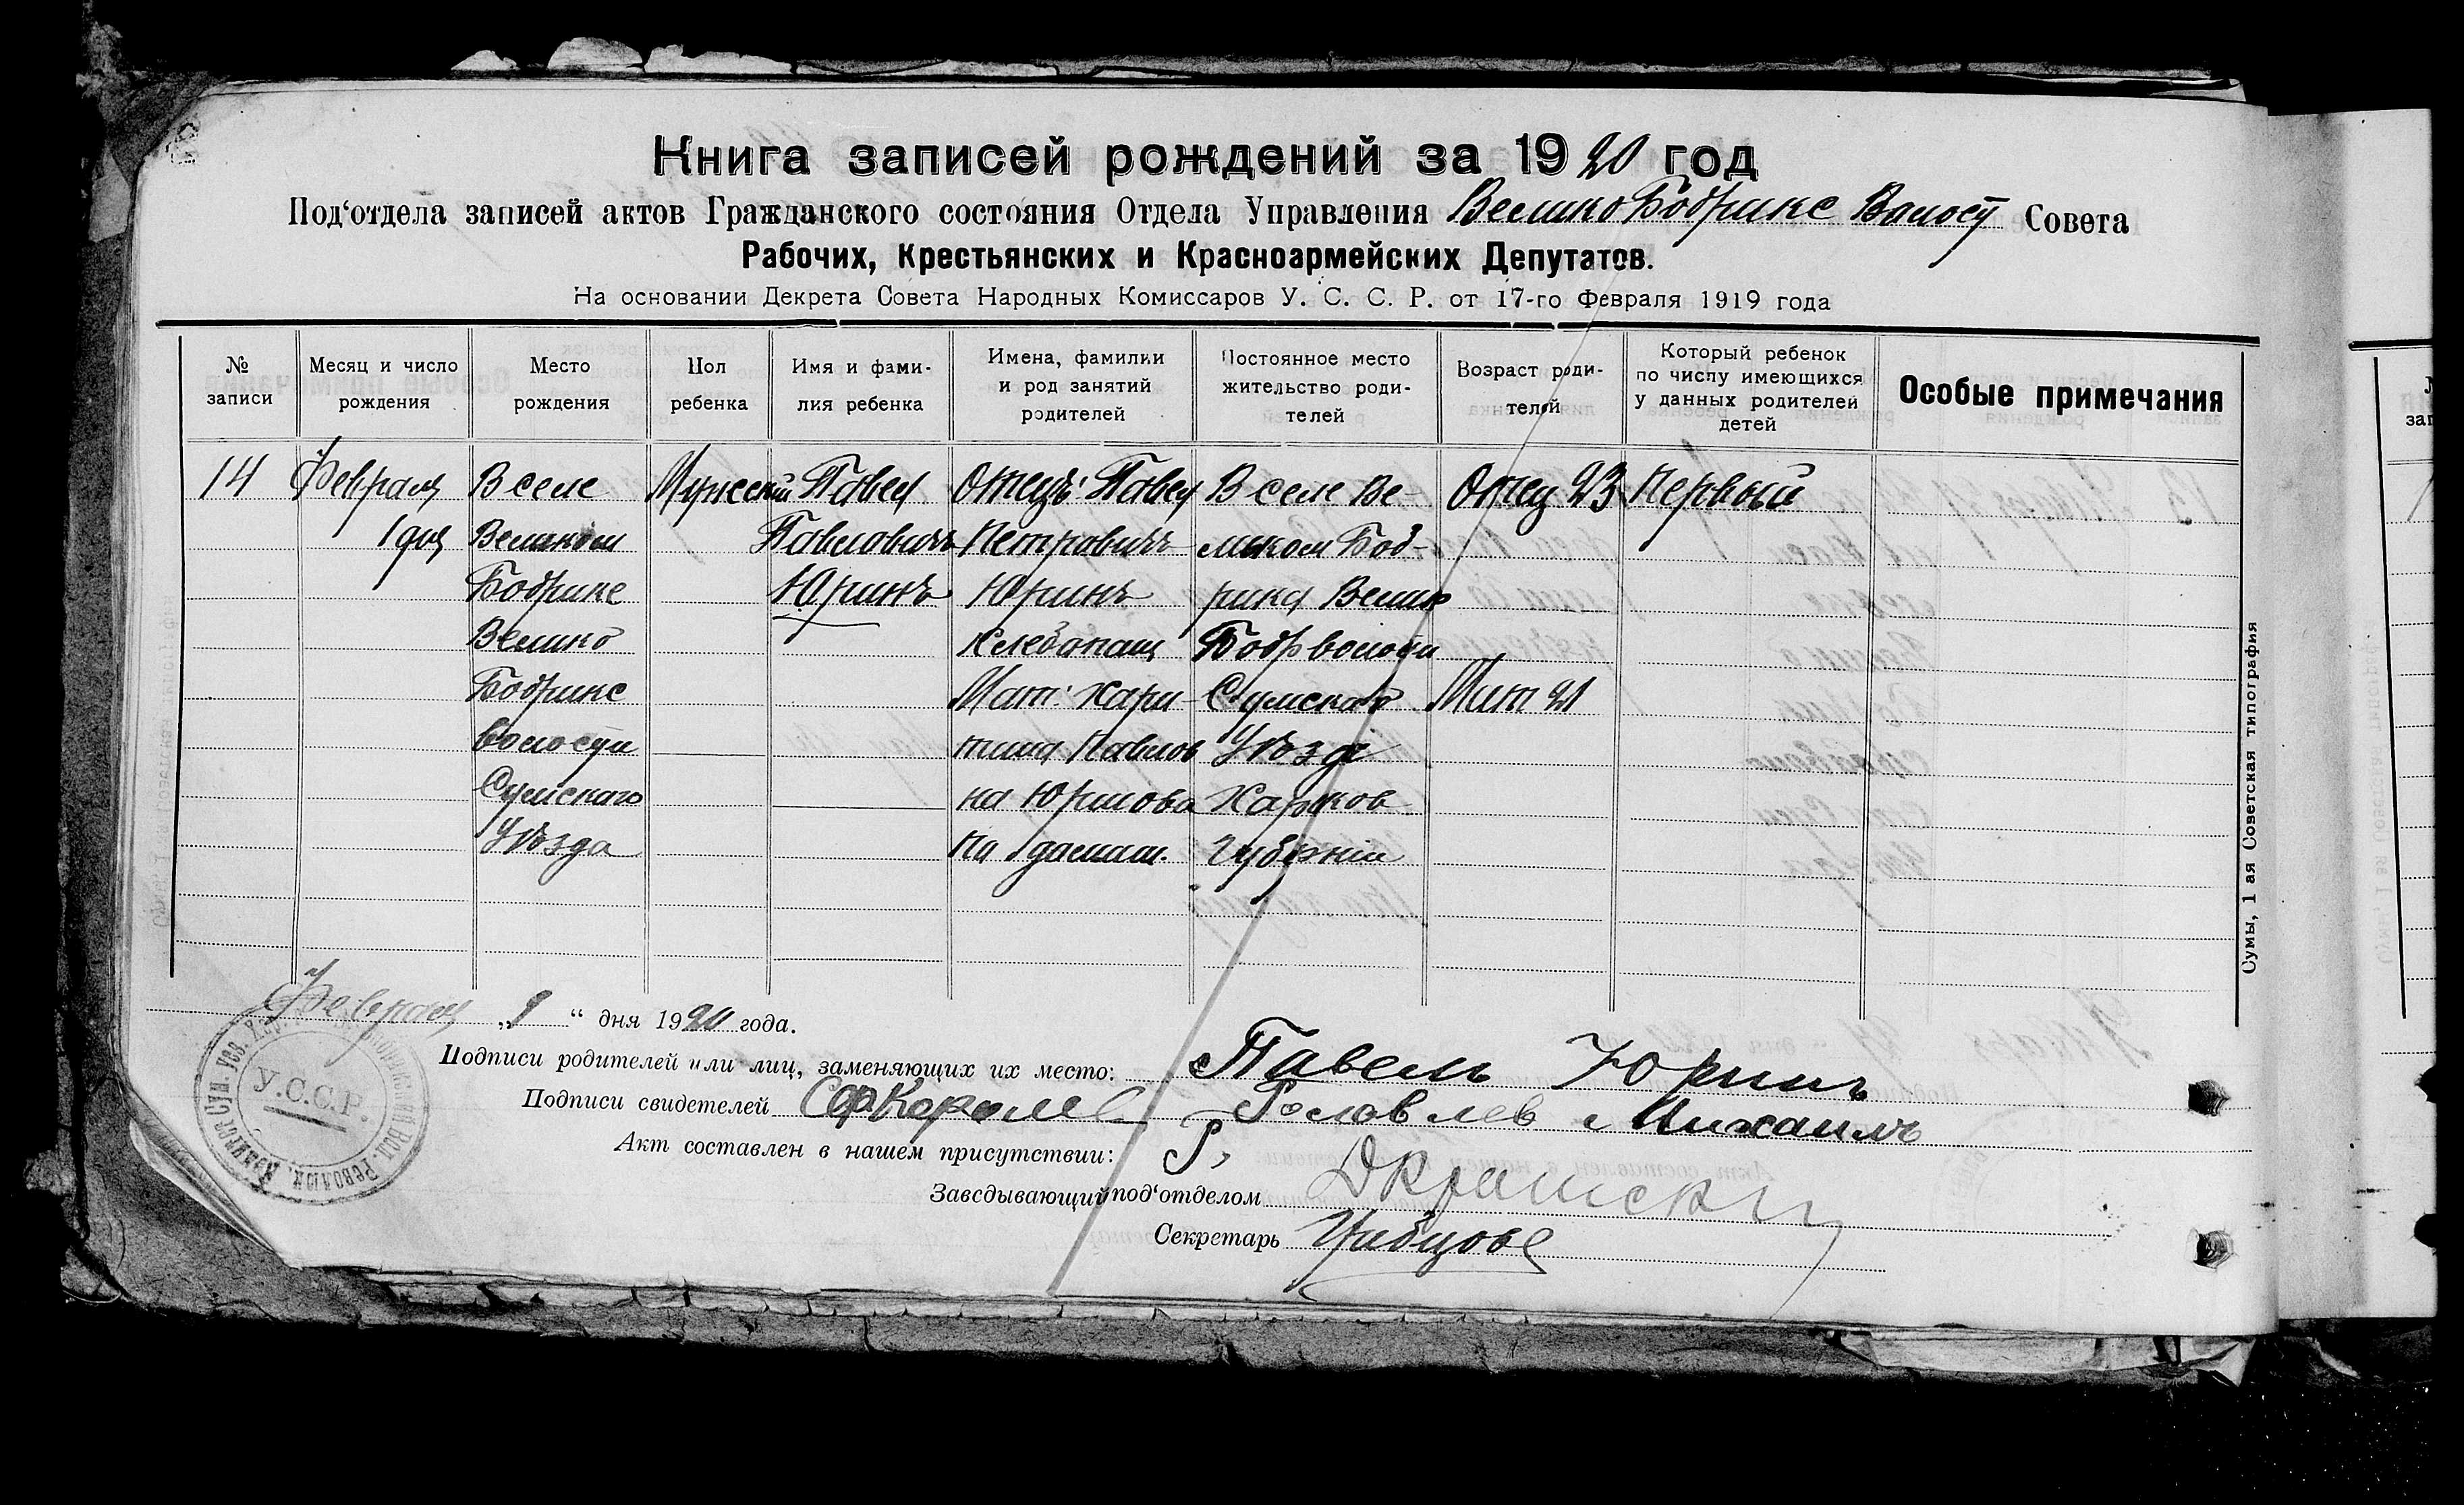 Книга записей рождений за 1920 год
Под‘отдела записей актов Гражданского состояния Отдела Управления Велико Бобрикс Волост Совета
Рабочих, Крестьянских и Красноармейских Депутатов.
На основании Декрета Совета Народных Комиссаров У. С. С. Р. от 17-го Февраля 1919 года
№ записи
Месяц и число рождения
Место рождения
Пол ребенка
Имя и фами-
лия ребенка
Имена, фамилии
и род занятий
родителей
Постоянное место
жительство роди-
телей
Возраст роди-
телей
Который ребенок
по числу имеющихся
у данных родителей
детей
Особые примечания
14
Февраля
1 дня
В селе
Великом
Бобрике
Велико
Бобрикс
волости
Сумскаго
Уѣзда
Мужской
Павел
Павловичъ
Юринъ
Отецъ: Павел
Петровичъ
Юринъ
хлебопаш
Мат: Хари-
тина Павлов
на Юрилова
На домаш.
В селе Ве-
ликом Боб-
рика Велик
Бобр волости
Сумскаго
Уѣзда
Харков
Губернии
Отец 23
Мат 21
Первый
Февраля „1“ дня 1920 года.
Подписи родителей или лиц, заменяющих их место: Павелъ Юринъ
Подписи свидетелей Михаилъ
Акт составлен в нашем присутствии:
Заведывающий под‘отделом
Секретарь
У.С.С.Р.
Сумы, 1 ая Советская типография